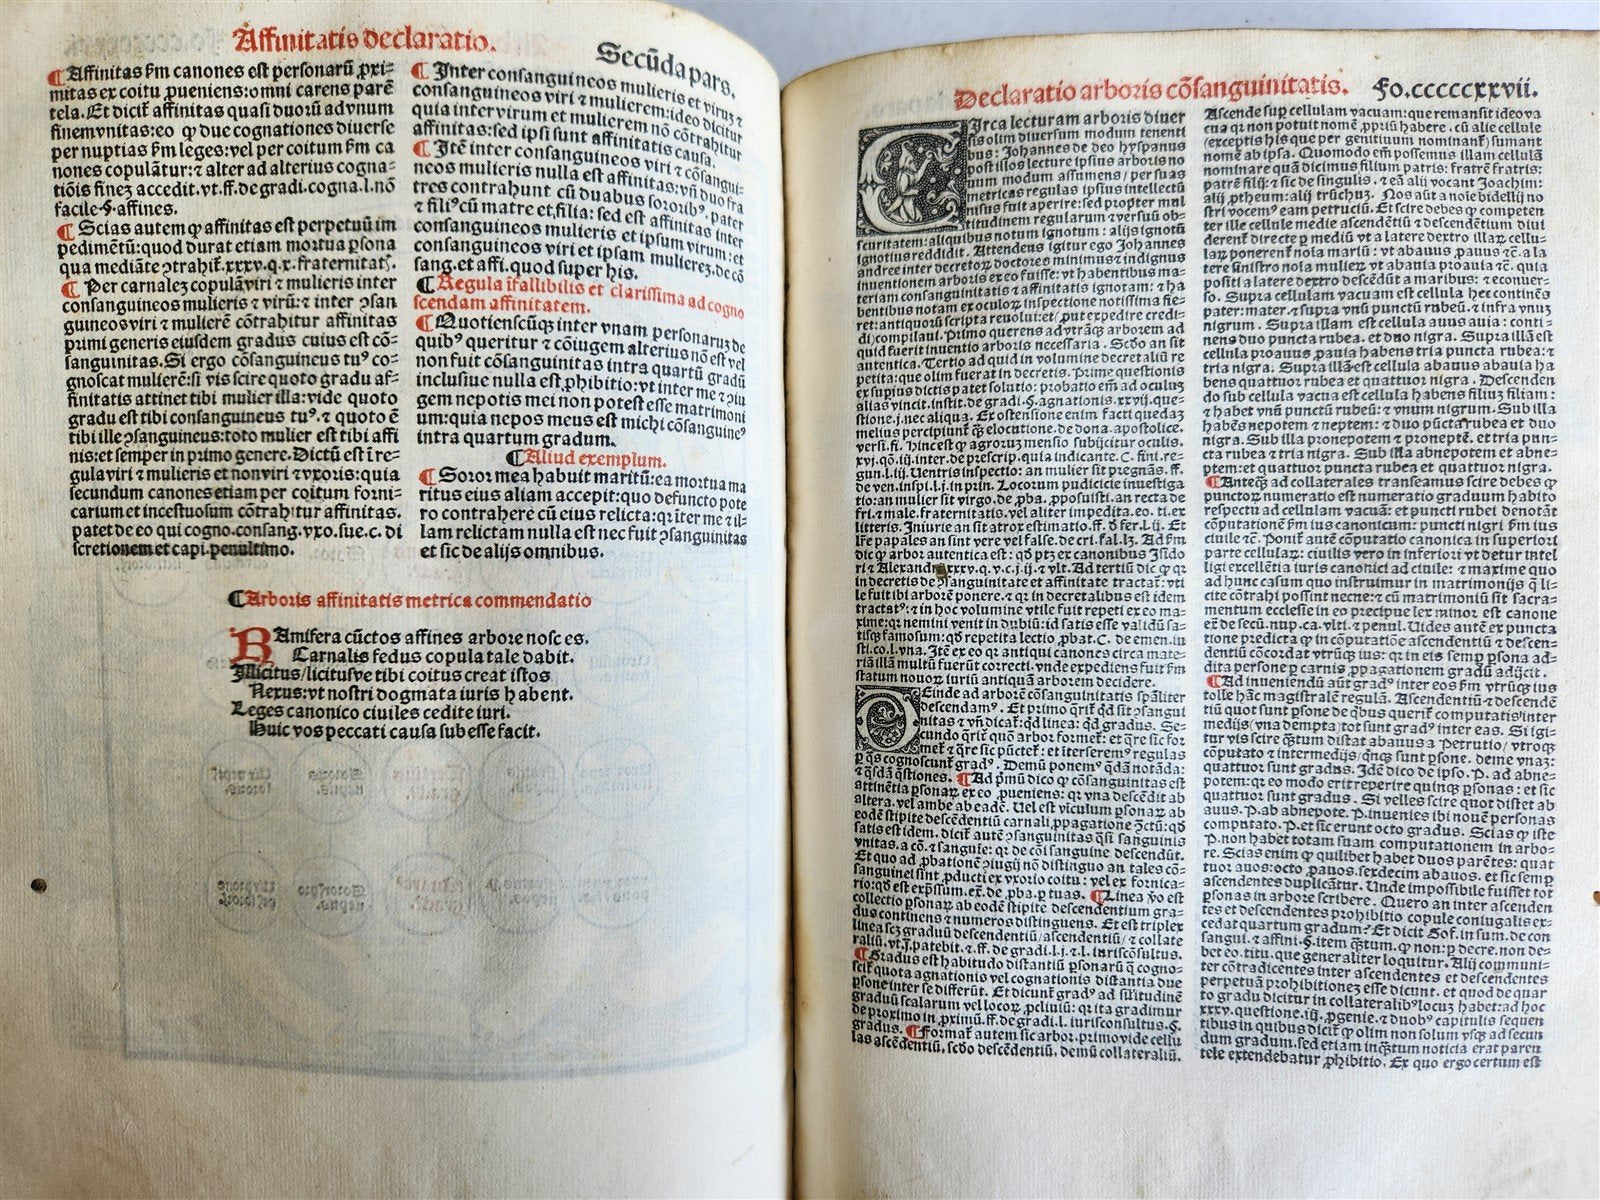 Affinitatis declaratio.
Secūda pars.
¶ Affinitas ẜm canones est personarū ꝓxi-
mitas ex coitu ꝓueniens: omni carens parē
tela. Et dicit͛ affinitas quasi duorū ad vnum
finem vnitas: eo ꝙ due cognationes diuerse
per nuptias ẜm leges: vel per coitum ẜm ca
nones copulātur: ⁊ alter ad alterius cogna-
tiōis finez accedit. vt. ff. de gradi. cogna. l. nō
facile. §. affines.
¶ Scias autem ꝙ affinitas est perpetuū im
pedimētū: quod durat etiam mortua ꝑsona
qua mediāte ꝯtrahit͛. xxxv. q. x. fraternitat͛.
¶ Per carnalez copulā viri ⁊ mulieris inter
consanguineos mulieris ⁊ virū: ⁊ inter ꝯsan
guineos viri ⁊ mulierē cōtrahitur affinitas
primi generis eiusdem gradus cuius est cō-
sanguinitas. Si ergo cōsanguineus tuꝰ co-
gnoscat mulierē: si vis scire quoto gradu af-
finitatis attinet tibi mulier illa: vide quoto
gradu est tibi consanguineus tuꝰ. ⁊ quoto ē
tibi ille ꝯsanguineus: toto mulier est tibi affi
nis: et semper in primo genere. Dictū est ī re-
gula viri ⁊ mulieris et non viri ⁊ vxoris: quia
secundum canones etiam per coitum forni-
carium et incestuosum cōtrahitur affinitas.
patet de eo qui cogno. consang. vxo. sue. c. di
scretionem et capi. penultimo.
¶ Inter consanguineos mulieris et virum ⁊
consanguineos viri ⁊ mulierem: ideo dicitur
quia inter virum et mulierem nō cōtrahitur
affinitas: sed ipsi sunt affinitatis causa.
¶ Itē inter consanguineos viri ⁊ cōsangui-
neos mulieris nulla est affinitas: vn̄ duo fra
tres contrahunt cū duabus sororibꝰ. pater
⁊ filiꝰ cū matre et filia: sed est affinitas inter
consanguineos mulieris et ipsum virum: et
consanguineos viri et ipsam mulierez. de cō
sang. et affi. quod super his.
¶ Regula ifallibilis et clarissima ad cogno
scendam affinitatem.
¶ Quotienscūqꝫ inter vnam personaruz de
quibꝰ queritur ⁊ cōiugem alterius nō est vel
non fuit cōsanguinitas intra quartū gradū
inclusiue nulla est ꝓhibitio: vt inter me ⁊ ꝯiu
gem nepotis mei non potest esse matrimoni
um: quia nepos meus est michi cōsanguineꝰ
intra quartum gradum.
¶ Aliud exemplum.
¶ Soror mea habuit maritū: ea mortua ma
ritus eius aliam accepit: quo defuncto pote
ro contrahere cū eius relicta: qr īter me ⁊ il-
lam relictam nulla est nec fuit ꝯsanguinitas
et sic de alijs omnibus.
¶ Arboris affinitatis metrica commendatio
RAmifera cūctos affines arbore nosces.
Carnalis fedus copula tale dabit.
Illicitus/licitusve tibi coitus creat istos
Nexus: vt nostri dogmata iuris habent.
Leges canonico ciuiles cedite iuri.
Huic vos peccati causa subesse facit.
Declaratio arboris cōsanguinitatis. Fo. cccccxxvii.
CIrca lecturam arboris diuer
sis olim diuersum modum tenenti
bus: Johannes de deo hyspanus
post illos lecture ipsius arboris no
uum modum assumens/per suas
metricas regulas ipsius intellectū
nisus fuit aperire: sed propter mul
titudinem regularum ⁊ versuū ob-
scuritatem: aliquibus notum ignotum: alijs ignotū
ignotius reddidit. Attendens igitur ego Johannes
andree inter decretoꝝ doctores minimus ⁊ indignus
arboris ex eo fuisse: vt habentibus ma-
teriam consanguinitatis ⁊ affinitatis ignotam: ⁊ ha
bentibus notam ex oculoꝝ inspectione notissima fie-
ret: antiquorū scripta reuolui: et/put expedire credi-
di/compilaui. Primo querens ad vtrāqꝫ arborem ad
quid fuerit inuentio arboris necessaria. Scdo an sit
autentica. Tertio ad quid in volumine decretaliū re
petita: que olim fuerat in decretis. Prime questionis
ex supius dictis patet solutio: probatio em̄ ad oculuz
alias vincit. instit. de gradi. §. agnationis. xxvij. que-
stione. j. nec aliqua. Ex ostensione enim facti quedaz
melius percipiunt͛ qꝫ elocutione. de dona. apostolice.
versi. fi. Hinc est ꝙ agroruz mensio subijcitur oculis.
xvj. q̄. iij. inter. de prescrip. quia indicante. C. fini. re-
gun. l. iij. Uentris inspectio: an mulier sit pregnās. ff.
de ven. inspi. l. j. in prin. Locorum pudicicie inuestiga
tio: an mulier sit virgo. de. ꝓba. ꝓposuisti. an recta de
fri. ⁊ male. fraternitatis. vel aliter impedita. eo. ti. ex
litteris. Iniurie an sit atrox estimatio. ff. d̄ fer. l. ij. Et
lr̄e papales an sint vere vel false. de cri. fal. lz. Ad ẜm
dic ꝙ arbor autentica est: qd ptz ex canonibus Isido
ri ⁊ Alexandri. xxxv. q. v. c. j. ij. ⁊ vlt. Ad tertiū dic ꝙ qr
in decretis de ꝯsanguinitate et affinitate tractat͛: vti
le fuit ibi arborē ponere. ⁊ qr in decretalibus est idem
tractatꝰ: ⁊ in hoc volumine vtile fuit repeti ex eo ma-
xime: qr nemini venit in dubiū: id satis esse validū sa-
tisqꝫ famosum: qd repetita lectio ꝓbat. C. de emen. iu
sti. co. l. vna. Itē ex eo qr antiqui canones circa mate-
riā illam multū fuerūt correcti. vnde expediens fuit ẜm
statum nouoꝝ iuriū antiquā arborem decidere.
DEinde ad arborē cōsanguinitatis spāliter
descendamꝰ. Et primo qrit͛ qd sit ꝯsangui
nitas ⁊ vn̄ dicat͛: qd linea: qd gradus. Se-
cundo qrit͛ quō arbor format͛: et qre sic for
met͛ ⁊ qre sic pūctet͛: et iterserem͛ regulas
ꝑ qs cognoscunt͛ gradꝰ. Demū ponemꝰ qdā notāda:
⁊ qsdā qstiones. ¶ Ad pmū dico ꝙ cōsanguinitas est
attinētia ꝑsonaꝝ ex eo ꝓueniens: qr vna descēdit ab
altera. vel ambe ab eadē. Uel est vīculum ꝑsonaꝝ ab
eodē stipite descēdentiū carnali ꝓpagatione ꝯtractū: qd
satis est idem. dicit͛ autē ꝯsanguinitas qsi sanguinis
vnitas. a cō. ⁊ sanguis: qr de cōi sanguine descendūt.
Et quo ad ꝓbationē ꝯiugij nō distinguo an tales cō-
sanguinei sint ꝓducti ex vxorio coitu: vel ex fornica-
rio: qd est exp̄ssum. eē. de ꝓba. p tuas. ¶ Linea ꝟo est
collectio ꝑsonaꝝ ab eodē stipite descendentium gra-
dus continens ⁊ numeros distinguens. Et est triplex
linea scz graduū descendentiū/ascendentiū/⁊ collate
raliū. vt. j. patebit. ⁊. ff. de gradi. l. j. ⁊. l. iurisconsultus.
¶ Gradus est habitudo distantiū ꝑsonarū q̄ cogno-
scit͛ quota agnationis vel cognationis distantia due
ꝑsone inter se differūt. Et dicunt͛ gradꝰ ad sil'itudinē
graduū scalarum vel locoꝝ ꝓcliuiū: qr ita gradimur
de proximo in ꝓximū. ff. de gradi. l. iurisconsultus. §.
gradus. ¶ Format͛ autem sic arbor. primo vide cellu
las ascēdentiū, scdo descēdentiū, demū collateraliū.
Ascende sup cellulam vacuam: que remansit ideo va
cua qr non potuit nomē ꝓpriū habere. cū alie cellule
(exceptis his que per genitiuum nominant͛) sumant
nomē ab ipsa. Quomodo em̄ possemus illam cellulā
nominare quā dicimus filium patris: fratrē fratris:
patrē filij: ⁊ sic de singulis. ⁊ eā alij vocant Joachim:
alij ꝓtheum: alij trūchuz. Nos aūt a noīe bidellij no
stri vocemꝰ eam petruciū. Et scire debes ꝙ competen
ter ille cellule medie ascendētiū ⁊ descendētium diui
derent͛ directe ꝑ mediū vt a latere dextro illaꝝ cellu-
laꝝ ponerent͛ noīa mariū: vt abauus ꝓauus ⁊cē. a la
tere sinistro noīa mulieꝝ vt abauia proauia ⁊cē. quia
positi a latere dextro descēdūt a maribus: ⁊ econuer-
so. Supra cellulam vacuam est cellula hec continēs
pater: mater. ⁊ supra vnū punctū rubeū. ⁊ infra vnuz
nigrum. Supra illam est cellula auus auia: conti-
nens duo puncta rubea. et duo nigra. Supra illā est
cellula proauus ꝓauia habens tria puncta rubea: ⁊
tria nigra. Supra illā est cellula abauus abauia ha
bens quattuor rubea et quattuor nigra. Descenden
do sub cellula vacua est cellula habens filiuz filiam:
⁊ habet vnū punctū rubeū: ⁊ vnum nigrum. Sub illa
habēs nepotem ⁊ neptem: ⁊ duo pūcta rubea et duo
nigra. Sub illa pronepotem ⁊ proneptē. et tria pun-
cta rubea ⁊ tria nigra. Sub illa abnepotem et abne-
ptem: et quattuor puncta rubea et quattuor nigra.
¶ Anteqꝫ ad collaterales transeamus scire debes ꝙ
punctoꝝ numeratio est numeratio graduum habito
respectu ad cellulam vacuā: et puncti rubei denotāt
cōputationē ẜm ius canonicum: puncti nigri ẜm ius
ciuile ⁊cē. Ponit͛ autē cōputatio canonica in superiori
parte cellulaꝝ: ciuilis vero in inferiori vt detur intel
ligi excellētia iuris canonici ad ciuile: ⁊ maxime quo
ad hunc casum quo instruimur in matrimonijs q̄ li-
cite cōtrahi possint necne: ⁊ cū matrimoniū sit sacra-
mentum ecclesie in eo precipue lex minor est canone
eē de secū. nup. ca. vlti. ⁊ penul. Uides autē ex puncta
tione predicta ꝙ in cōputatiōe ascendentiū ⁊ descen-
dentiū cōcordat vtrūqꝫ ius: qr in eis semꝑ ꝑsona ad-
dita persone ꝑ carnis ꝓpagationem gradū adijcit.
¶ Ad inueniendū aūt gradꝰ inter eos ẜm vtrūqꝫ ius
tolle hāc magistralē regulā. Ascendentiū ⁊ descendē
tiū quot sunt ꝑsone de qbus querit͛ computatis inter
medijs/vna dempta/tot sunt gradꝰ inter eas. Si igi-
tur vis scire qꝫtum distat abauus a Petrutio/vtroqꝫ
cōputato ⁊ intermedijs/qnqꝫ sunt ꝑsone. deme vnaz:
quattuor sunt gradus. Idē dico de ipso. P. ad abne-
potem: qr eo modo erit reperire quinqꝫ ꝑsonas: et sic
quattuor sunt gradus. Si velles scire quot distet ab
auus. P. ab abnepote. P. inuenies ibi nouē personas
computato. P. et sic erunt octo gradus. Scias ꝙ iste
P. non habet totam suam computationem in arbo-
re. Scias enim ꝙ quilibet habet duos parētes: quat
tuor auos: octo ꝓauos. sexdecim abauos. et sic semꝑ
ascendentes duplicātur. Unde impossibile fuisset tot
ꝑsonas in arbore scribere. Quero an inter ascenden
tes et descendentes prohibitio copule coniugalis ex-
cedat quartum gradum? Et dicit Gof. in sum. de con
sangui. ⁊ affini. §. item qꝫtum. ꝙ non: ꝑ decre. non de-
bet eo. titu. que generaliter loquitur. Alij communi-
ter cōtradicentes inter ascendentes et descendentes
perpetuā prohibitionez esse dicunt. et quod de quar
to gradu dicitur in collateralibꝰ locuz habet: ad hoc
xxxv. questione. iij. ꝓgenie. ⁊ duobꝰ capitulis sequen
tibus in quibus dicit͛ ꝙ olim non solum vsqꝫ ad secun
dum gradum. sed etiam inqꝫtum noticia erat paren
tele extendebatur ꝓhibitio. Ex quo ergo certum est